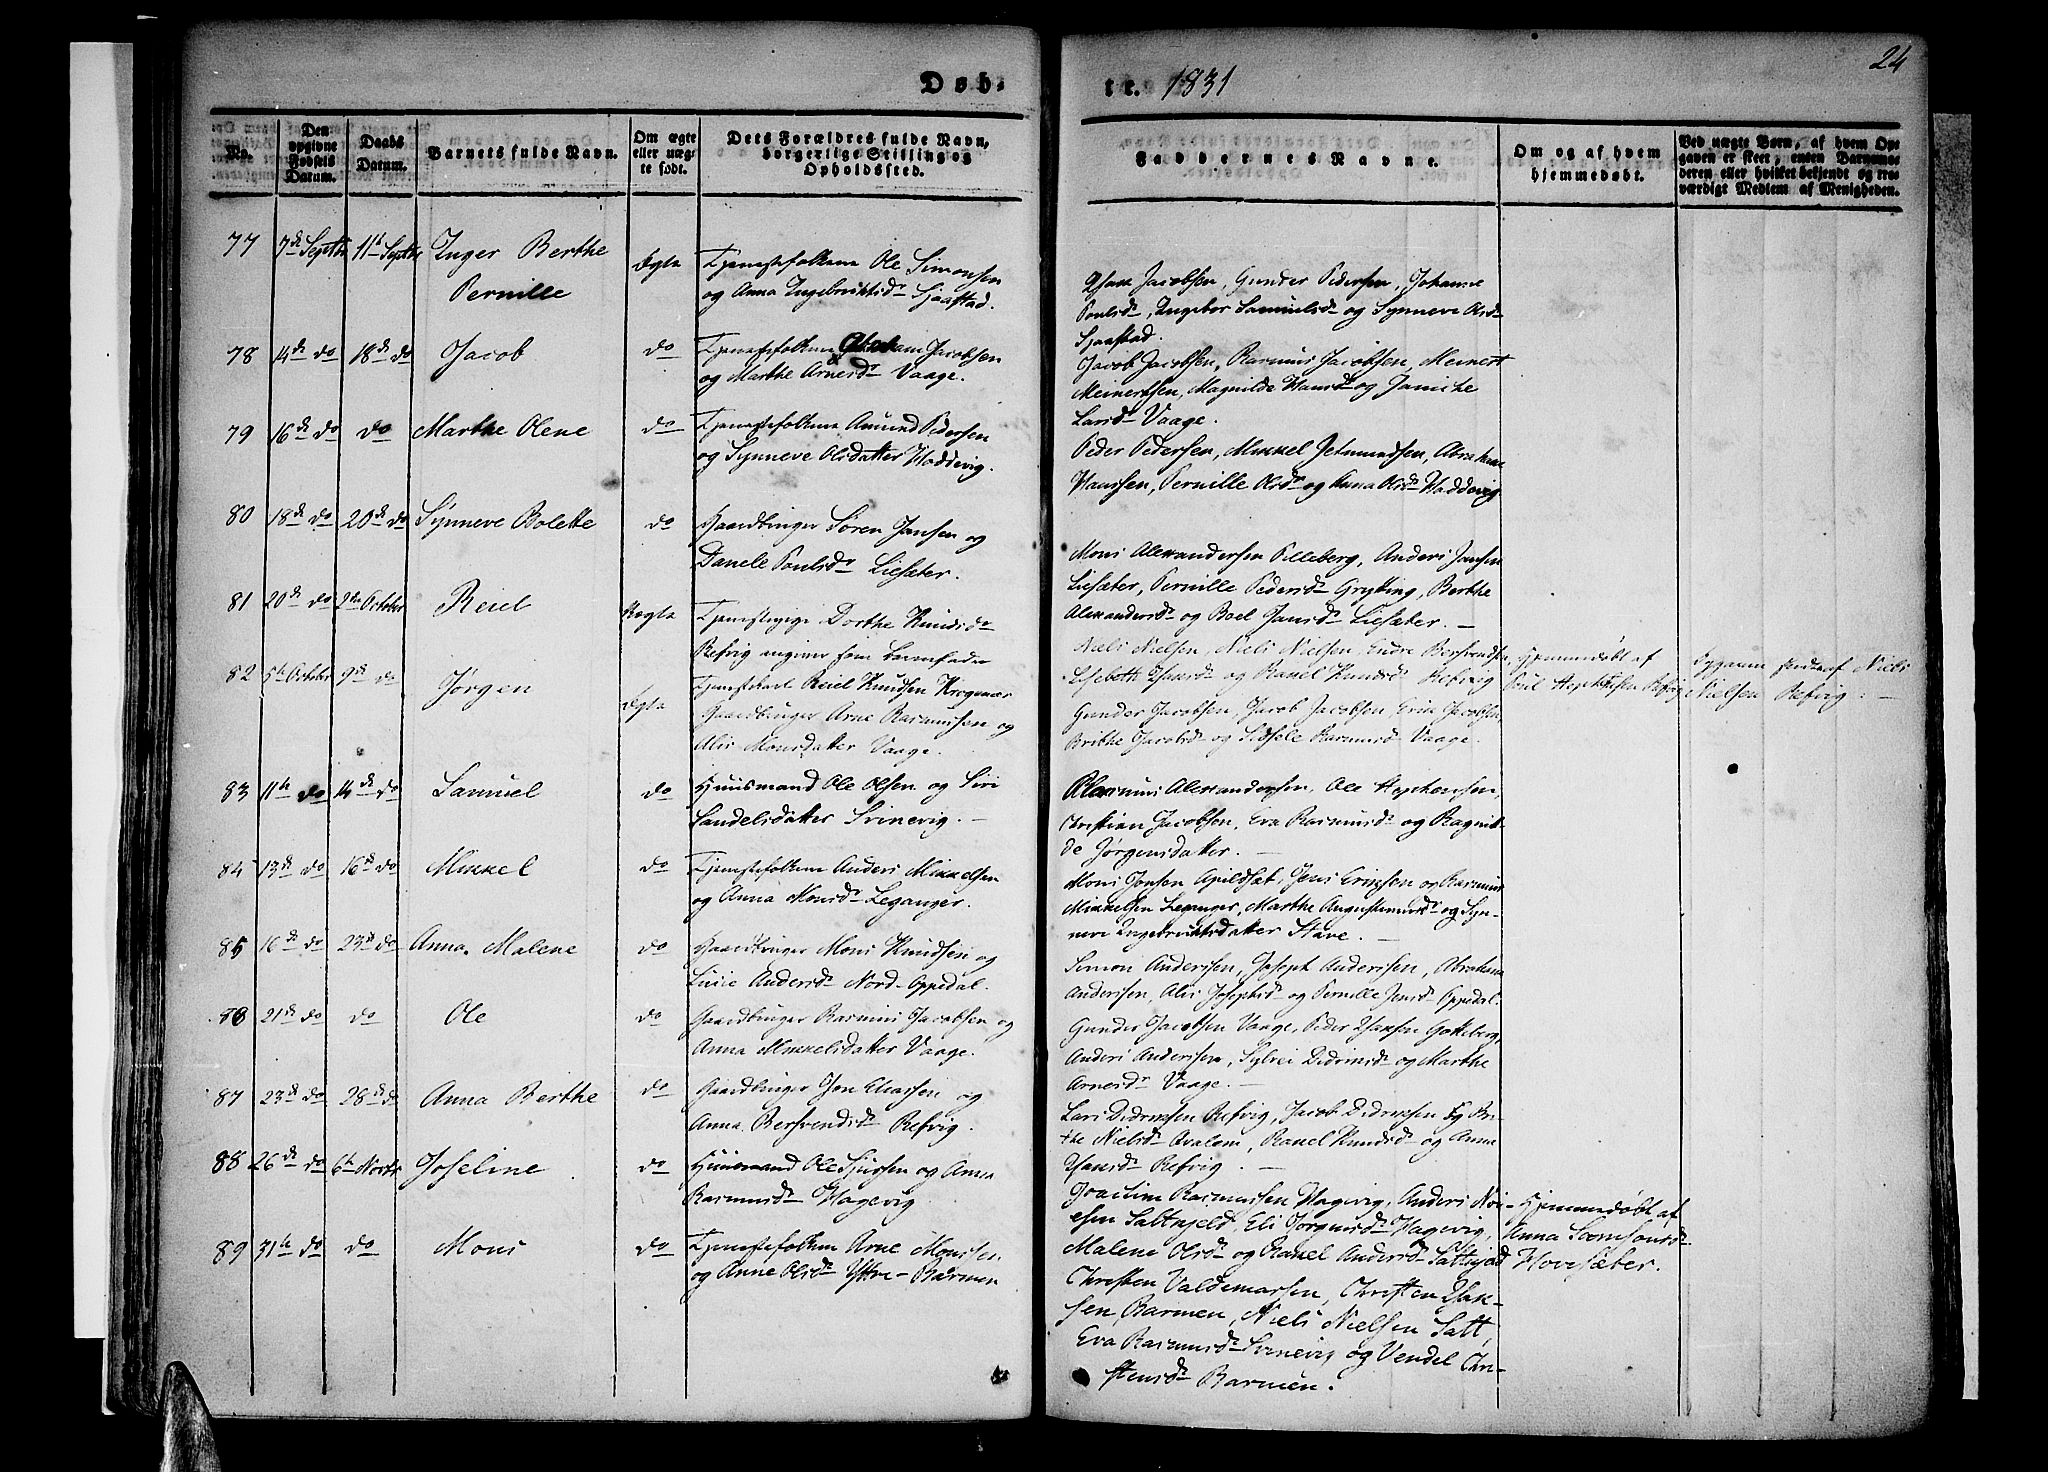 24
Døb-
te. 1831
No.
Den opgivne Fødsels Datum.
Daabs Datum.
Barnets fulde Navn.
Om ægte eller uægte født.
Dets Forældres fulde Navn, borgerlige Stilling og Opholdssted.
Faddernes Navne.
Om og af hvem hjemmedøbt.
Ved uægte Børn, af hvem Opgaven er skeet, enten Barnemoderen eller hvilket bekjendt og troværdigt Medlem af Menigheden.
77 7de Septbr 11te Septbr Inger Berthe Pernille
Ægte
Tjenestefolkene Ole Simonsen
og Anna Ingebrictsdr Sjaastad.
Isak Jacobsen, Gunder Pedersen, Johanne
Poulsdr, Ingebor Samuelsdr og Synneve Olsdr
Sjaastad.
78 14de do 18de do Jacob do
Tjenestefolkene Jacobsen
og Marthe Arnesdr Vaage.
Jacob Jacobsen, Rasmus Jacobsen, Meinert
Meinertsen, Magnilde Hansdr og Janiche
Larsdr Vaage.
79 16de do do Marthe Olene do
Tjenestefolkene Amund Pedersen
og Synneve Olsdatter Hoddevig.
Peder Pedersen, Mikkel Jetmundsen, Abraham
Hanssen, Pernille Olsdr og Anna Olsdr Hoddevig
80 18de do 20de do Synneve Bolette do
Gaardbruger Søren Jansen og
Danele Poulsdr Liesæter.
Mons Alexandersen Pilleberg, Anders Jansen
Liesæter, Pernille Pedersdr Gryting, Berthe
Alexandersdr og Boel Jansdr Liesæter. —
81 20de do 2den October Reiel Uægte
Tjenestepige Dorthe Knudsdr
Refvig angiver som Barnefader
Tjenestekarl Reiel Knudsen
Niels Nielsen, Niels Nielsen, Endre Bersvendsen,
Lisebeth Isaksdr og Ranel Knudsdr Refvig
Hjemmedøbt af
Poul Refvig
Opgaven skeet af Niels
Nielsen Refvig. —
82 5te October 9de do Jørgen Ægte
Gaardbruger Arne Rasmussen og
Alis Monsdatter Vaage.
Gunder Jacobsen, Jacob Jacobsen, Erik Jacobsen,
Brithe Jacobsdr og Sidsele Rasmusdr Vaage.
83 11te do 14de do Samuel do
Huusmand Ole Olsen og Siri
Sandelsdatter Svinevig. —
Rasmus Alexandersen, Ole Stephensen,
Christian Jacobsen, Eva Rasmusdr og Ragnil-
de Jørgensdatter. —
84 13de do 16de do Mikkel do
Tjenestefolkene Anders Mikkelsen
og Anna Monsdr Leganger.
Mons Jonsen Apildsæt, Jens Eriksen og Rasmus
Mikkelsen Leganger, Marthe Augustinusdr og Syn-
neve Ingebrictsdatter Stave. —
85 16de do 23de do Anna Malene do
Gaardbruger Mons Knudsen og
Lisie Andersdr Nord-Oppedal.
Simon Andersen, Joseph Andersen, Abraham
Andersen, Alis Josephsdr og Pernille Jensdr Oppedal.
86 21de do do Ole do
Gaardbruger Rasmus Jacobsen og
Anna Mikkelsdatter Vaage.
Gunder Jacobsen Vaage, Peder Isaksen Gotteberg,
Anders Andersen, Sylvei Didriksdr og Marthe
Arnesdr Vaage. —
87 23de do 28de do Anna Berthe do
Gaardbruger Jon Eliassen og
Anna Bersvendsdr Refvig.
Lars Didriksen Refvig, Jacob Didriksen og Bri-
the Nielsdr Qvalem, Ranel Knudsdr og Anna
Isaksdr Refvig. —
88 26de do 6te Novbr Joseline do
Huusmand Ole Sjursen og Anna
Rasmusdr Hagevig
Joachim Rasmussen Hagevig, Anders
Saltkjeld, Eli Jørgensdr Hagevig,
Malene Olsdr og Ranel Andersdr
Hjemmedøbt af
Anna
Hovesæter.
89 31te do do Mons do
Tjenestefolkene Arne Monsen
og Anne Olsdr Yttre-Barmen
Christen Valdemarsen, Christen Isak-
sen Barmen, Niels Nielsen Satt,
Eva Rasmusdr Svinevig og Vendel Chri-
stensdr Barmen.